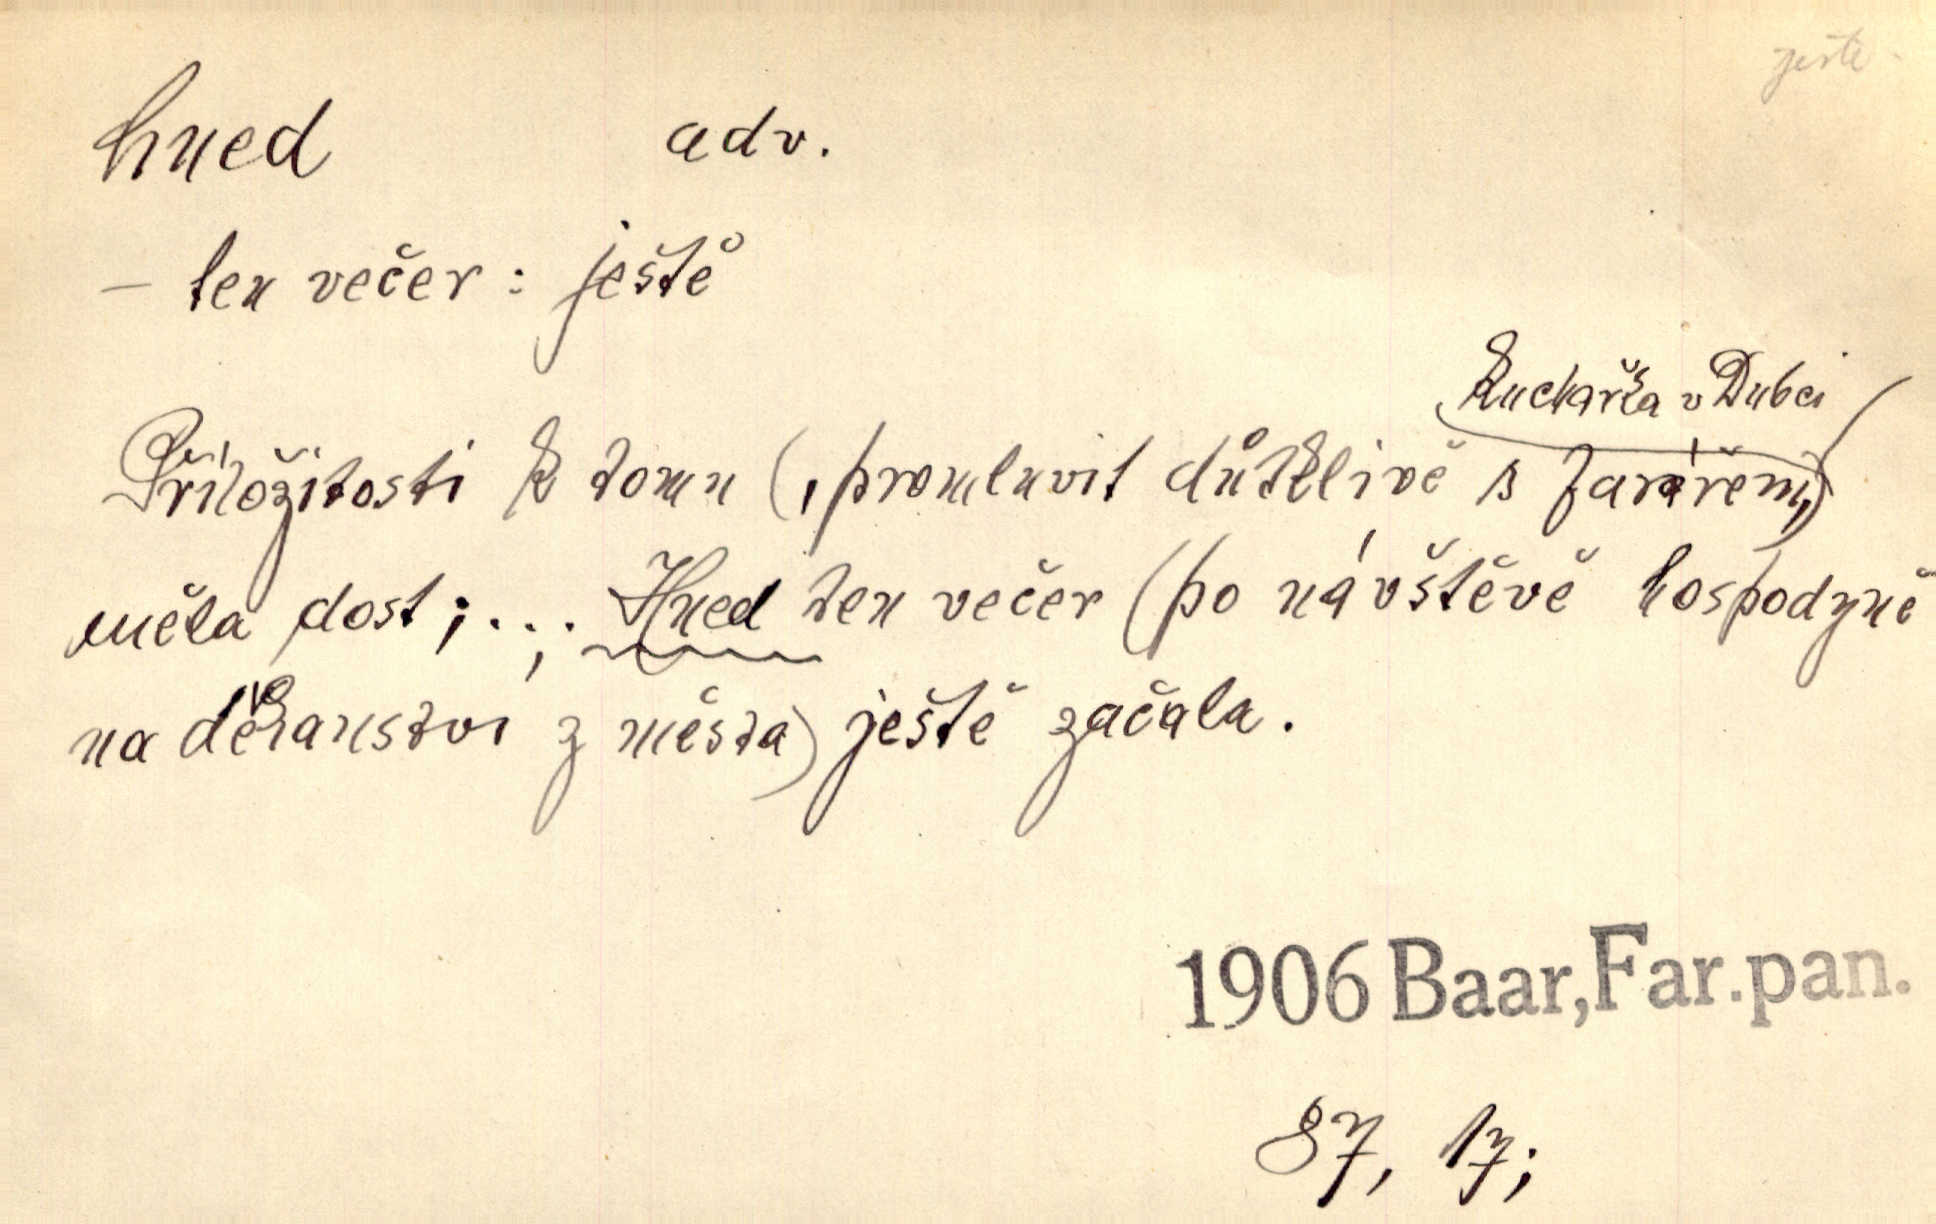 ještě
hned adv.
– ten večer: ještě
kuchařka v Dubci
Příložitosti k tomu (, promluvit důtklivě s farářem,)
měla dost; ... Hned ten večer (po návštěvě hospodyně
na děkanství z města) ještě začala.
1906 Baar, Far. pan.
87, 17;